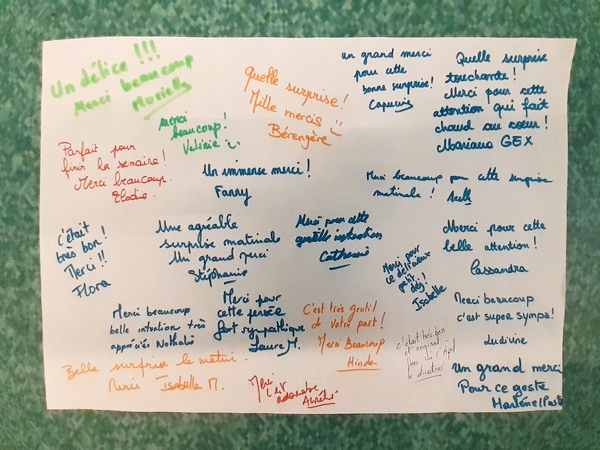 Un délice !!!
Merci beaucoup
Murielle
Merci
beaucoup !
Valérie
Quelle surprise !
Mille mercis
Bérengère
un grand merci
pour cette
bonne surprise !
Capucine
Quelle surprise
touchante !
Merci pour cette
attention qui fait
chaud au coeur !
Mariana GEX
Parfait pour
finir la semaine !
Merci beaucoup.
Elodie
Un immense merci !
Fanny
Merci beaucoup pour cette surprise
matinale !
C'était
très bon !
Merci !!
Flora
Une agréable
surprise matinale
Un grand merci
Stéphanie
Merci pour cette
gentille intention
Catherine
Merci pour
ce délicieux
petit
déj !
Isabelle
Merci pour cette
belle attention !
Cassandra
Merci beaucoup
belle intention très
appréciée Nathalie
Merci pour
cette pensée
fort sympathique
Laure M.
C'est très gentil
de votre part !
Merci Beaucoup
Hinda
C'était très bon
et original
le directeur
Merci beaucoup
c'est super sympa !
Ludivine
Belle surprise le matin.
Merci Isabelle M.
Merci
c'est
adorable
Aurélie
Un grand merci
Pour ce geste
Marlène